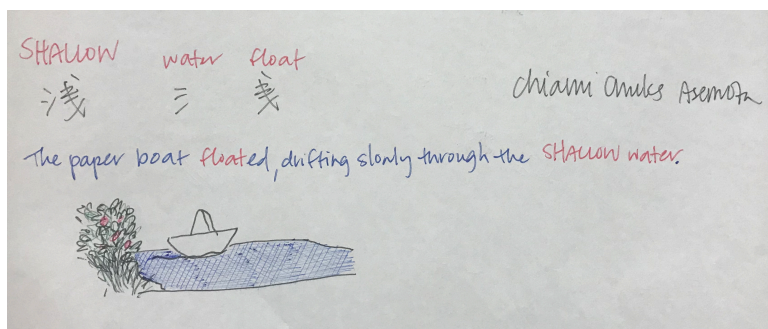 SHALLOW water float
浅 氵 㦮
Chiami Omuks Asemota
The paper boat floated, drifting slowly through the SHALLOW water.